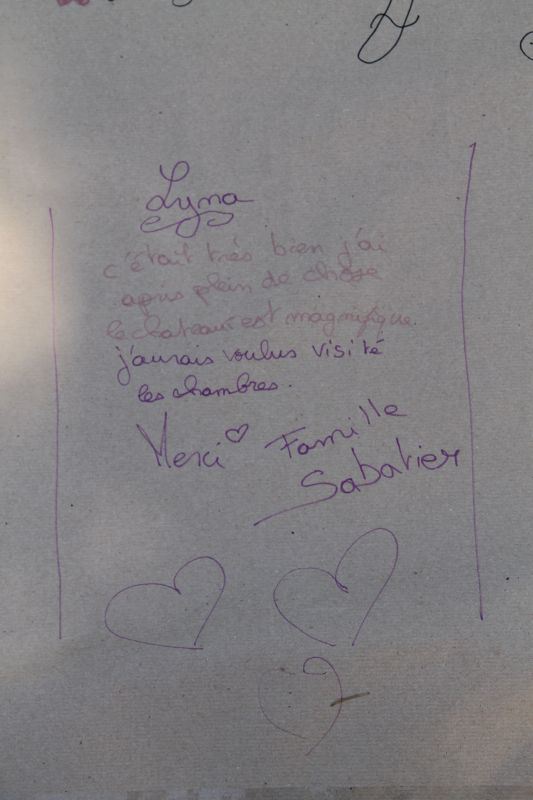 Lyna
c'était très bien j'ai
apris plein de chose
le chateau est magnifique.
j'aurais voulus visité
les chambres.
Merci Famille
Sabatier